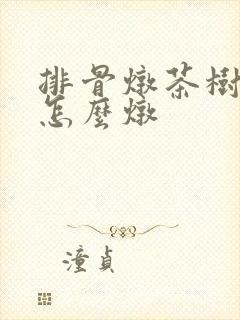 排骨燉茶樹
怎麼燉
潼貞